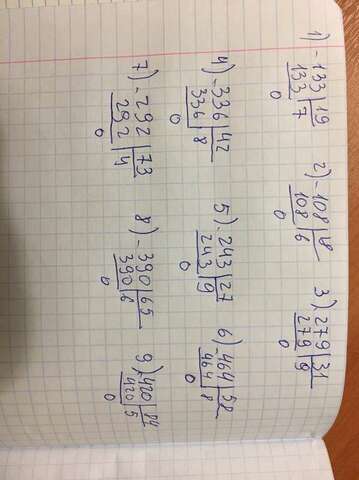 1) -133 | 19
133 | 7
0
2) -108 | 18
108 | 6
0
3) 279 | 31
279 | 9
0
4) -336 | 42
336 | 8
0
5) -243 | 27
243 | 9
0
6) -464 | 58
464 | 8
0
7) -292 | 73
292 | 4
0
8) -390 | 65
390 | 6
0
9) -420 | 84
420 | 5
0